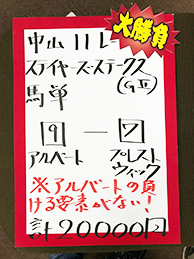 大勝負
中山11レース
ステイヤーズステークス
(GⅡ)
馬単
9 — 7
アルバート プレスト
ウィック
※アルバートの負
ける要素がない!
計20000円